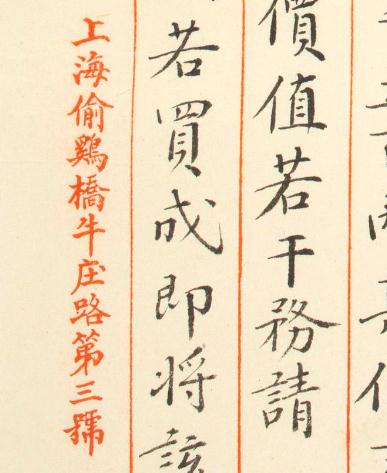 價值若干務請
若買成即將該
上海偷鷄橋牛庄路第三號